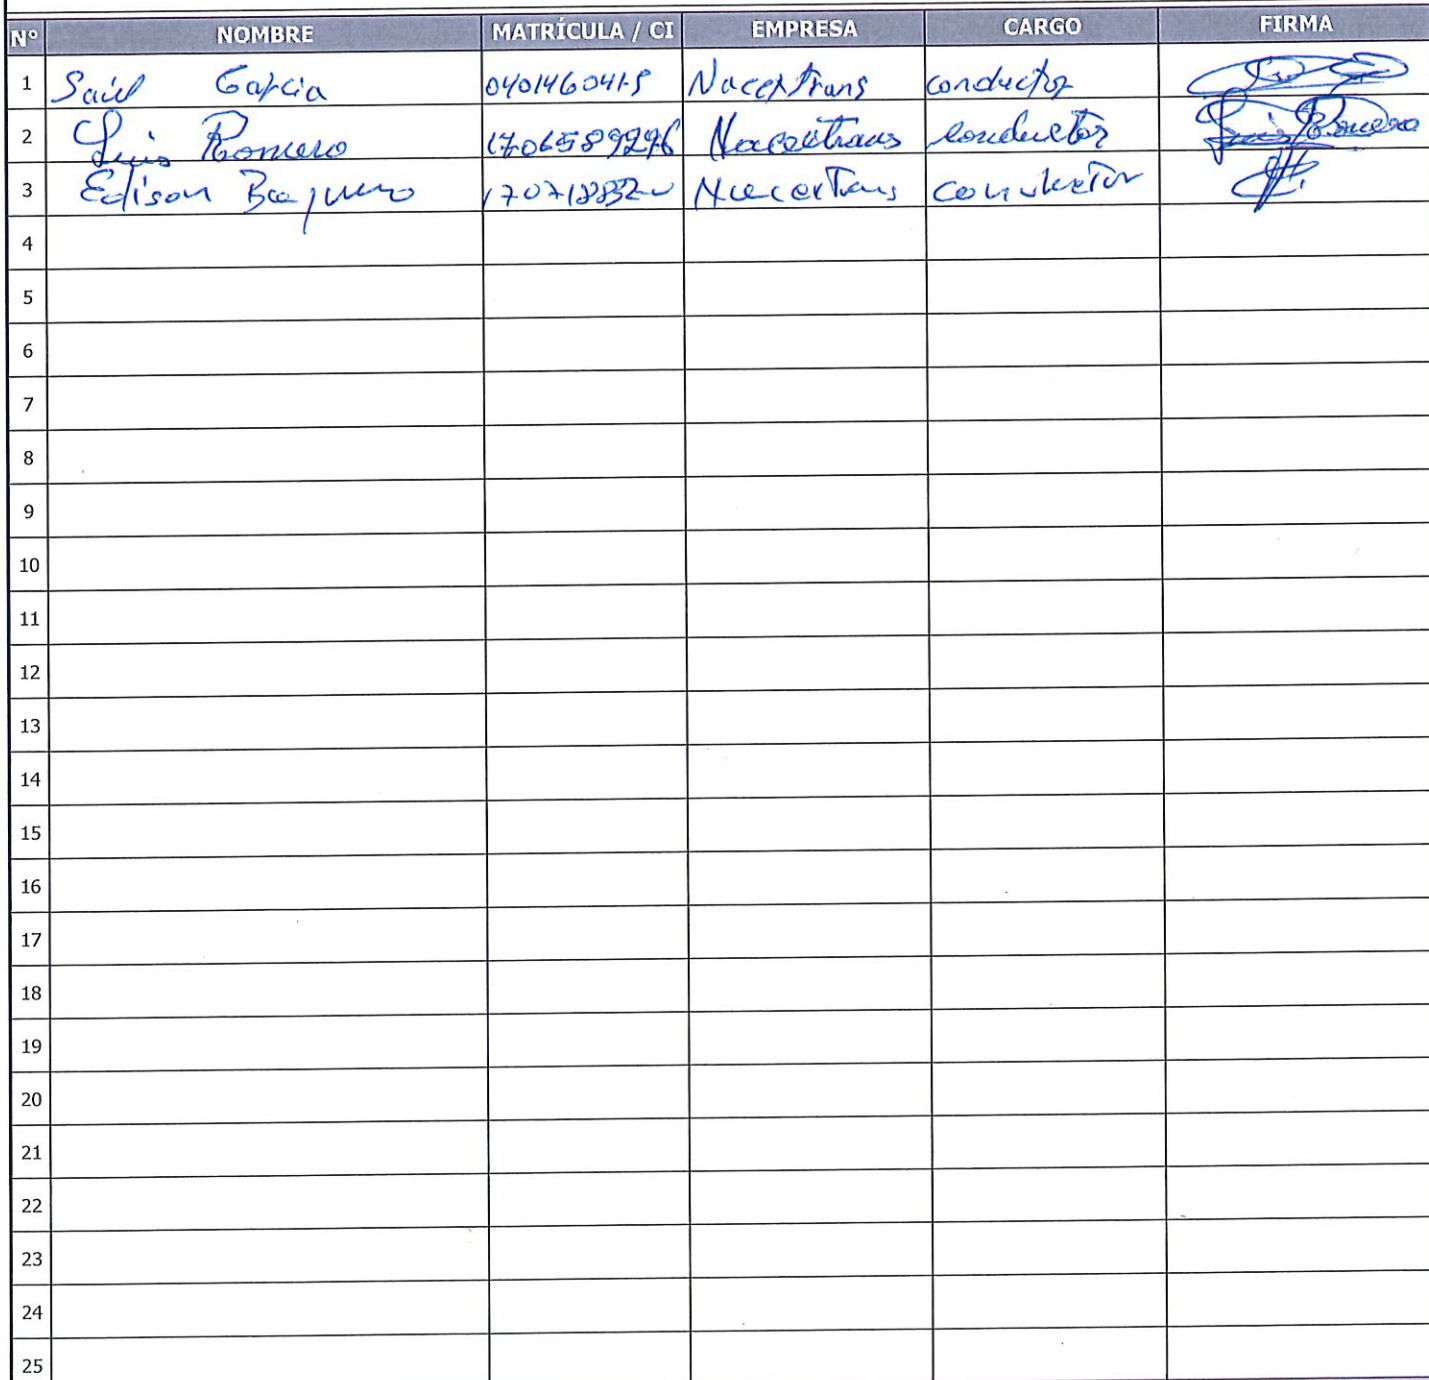 Nº NOMBRE MATRÍCULA / CI EMPRESA CARGO FIRMA
1 Saúl García 040146041-5 Nacextrans conductor
2 Luis Romero 1706589296 Nacextrans conductor Luis Romero
3 Edison Baquero Nacextrans conductor
4
5
6
7
8
9
10
11
12
13
14
15
16
17
18
19
20
21
22
23
24
25